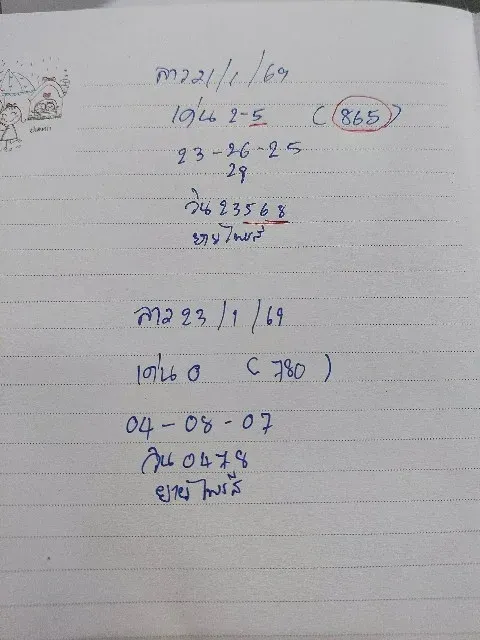 ลาว 21/1/69
เด่น 2-5 (865)
23-26-25
29
วิน 23568
ยายไพรสี
ลาว 23/1/69
เด่น 0 (780)
04-08-07
วิน 0478
ยายไพรสี